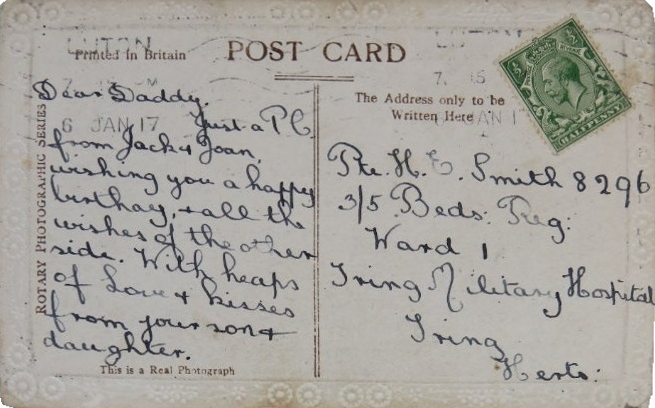 LUTON
Printed in Britain
POST CARD
6 JAN 17
Dear Daddy.
Just a P.C.
from Jack & Joan,
wishing you a happy
birthday, & all the
wishes of the other
side. With heaps
of Love & kisses
from your son &
daughter.
ROTARY PHOTOGRAPHIC SERIES
This is a Real Photograph
The Address only to be
Written Here
HALFPENNY
Pte. H. E. Smith 8296
3/5 Beds. Reg:
Ward 1
Tring Military Hospital
Tring
Herts: